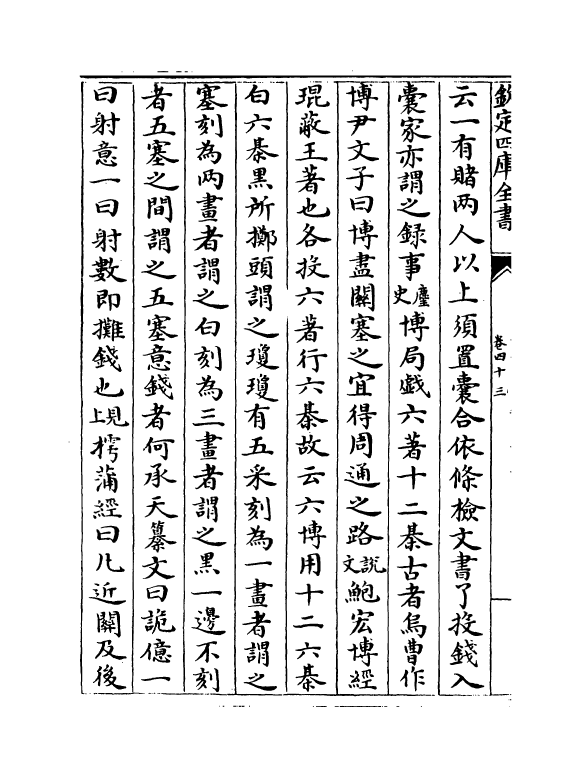 欽定四庫全書
卷四十三
云一有賭两人以上須置囊合依條檢文書了投錢入
囊家亦謂之録事塵史博局戯六著十二棊古者烏曹作
博尹文子曰博盡關塞之宜得周通之路說文鮑宏博經
琨蔽王著也各投六著行六棊故云六博用十二六棊
白六棊黒所擲頭謂之瓊瓊有五采刻為一畫者謂之
塞刻為两畫者謂之白刻為三畫者謂之黒一邊不刻
者五塞之間謂之五塞意錢者何承天纂文曰詭億一
曰射意一曰射數即攤錢也見上樗蒲經曰凡近關及後